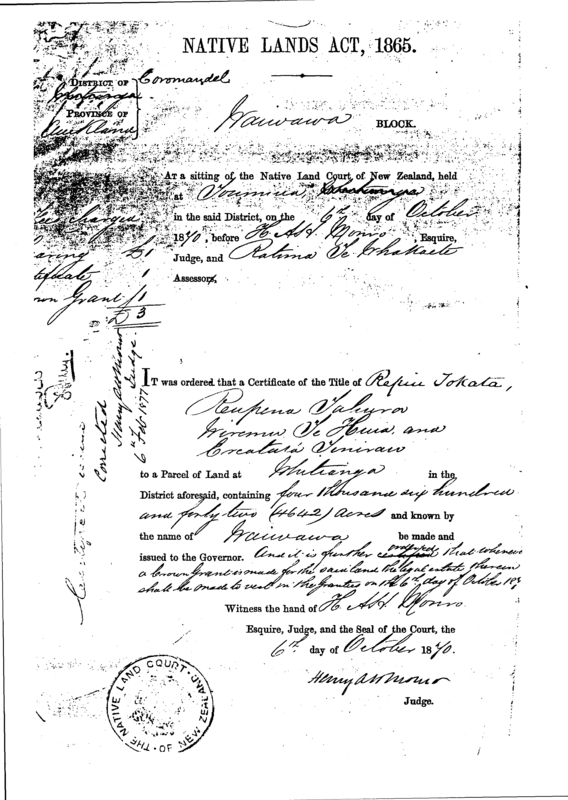 NATIVE LANDS ACT, 1865.
DISTRICT OF Coromandel
PROVINCE OF
Auckland
Waiwawa BLOCK.
AT a sitting of the Native Land Court of New Zealand, held
at
in the said District, on the 6th day of October
1870, before H. A. H. Monro, Esquire,
Judge, and Ratima Te
Assessor,
£1
1
Grant 1
£ 3
Corrected
Henry A H Monro
Judge.
6th Feb 1877
IT was ordered that a Certificate of the Title of Repiu Tokata,
Reupena
Wiremu Te Huia and
to a Parcel of Land at Whitianga in the
District aforesaid, containing four thousand six hundred
and forty two (4642) Acres and known by
the name of Waiwawa be made and
issued to the Governor. And it is further ordered that whenever
a Crown Grant is made for the said land the legal estate therein
shall be made to vest in the Grantees on the 6th day of October 187
Witness the hand of H. A. H. Monro
Esquire, Judge, and the Seal of the Court, the
6th day of October 1870.
Henry A H Monro
Judge.
THE NATIVE LAND COURT OF NEW ZEALAND